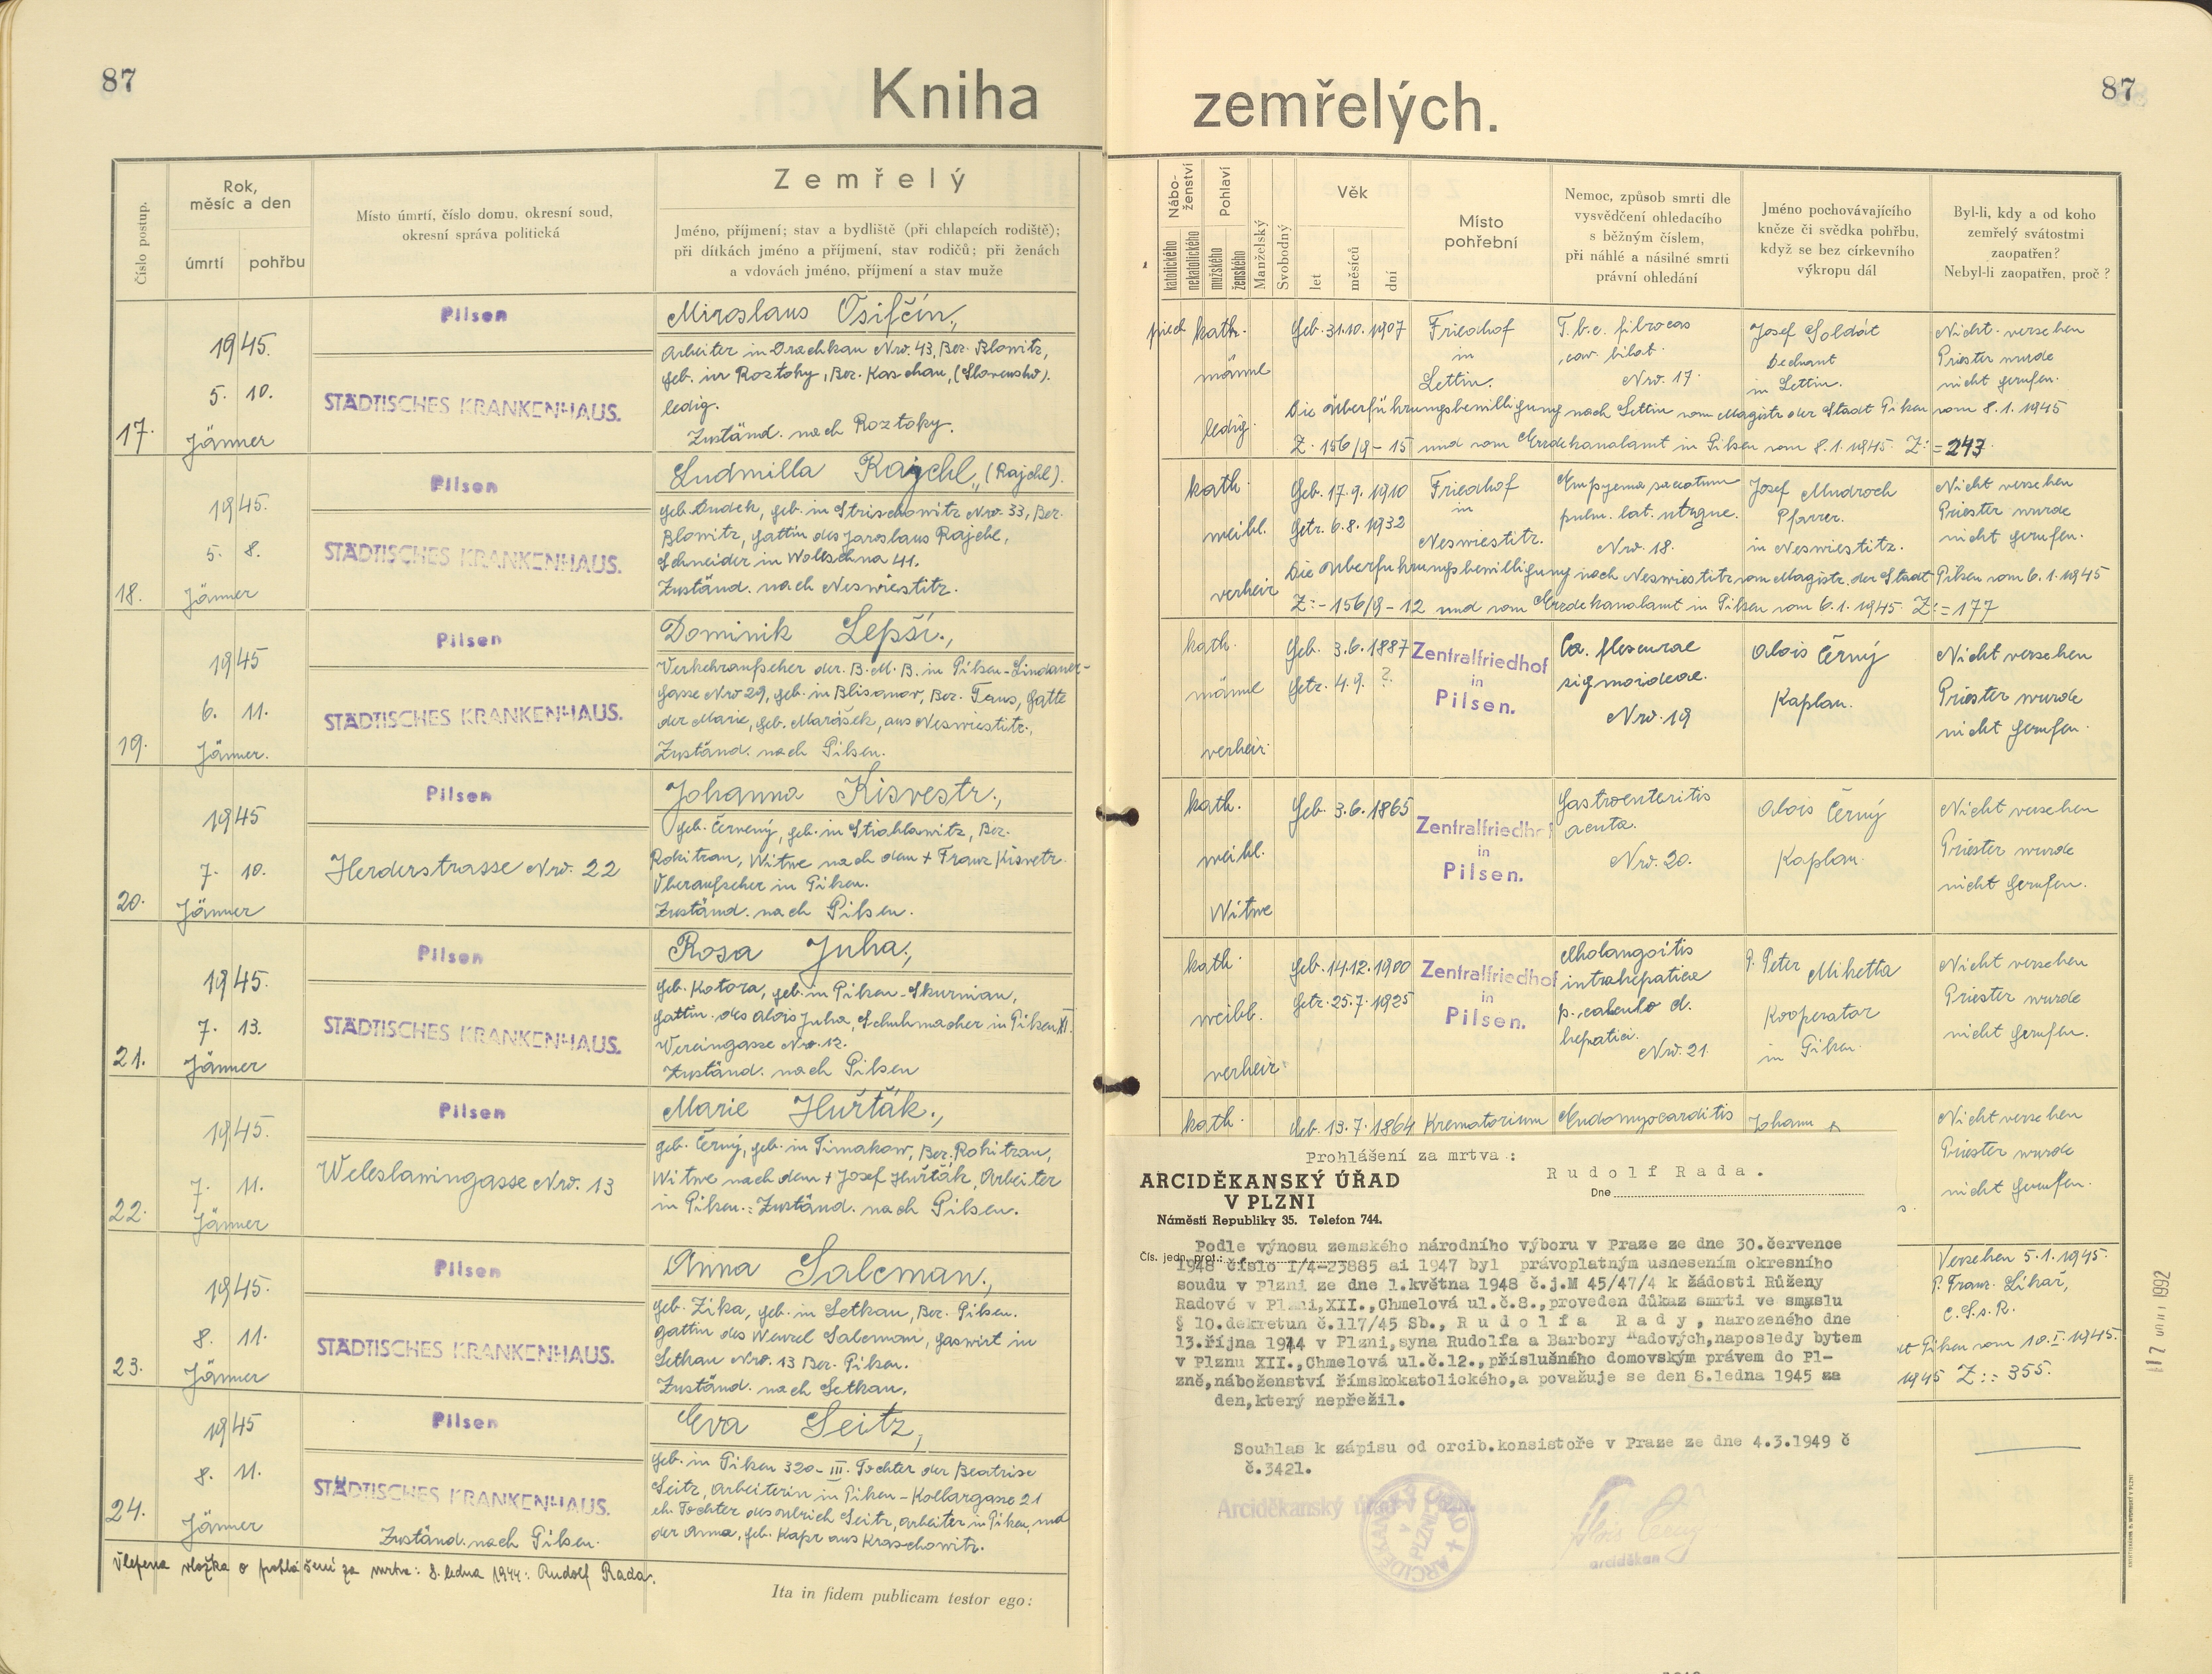 87
Kniha
zemřelých.
87
Číslo postup.
Rok,
měsíc a den
úmrtí
pohřbu
Místo úmrtí, číslo domu, okresní soud,
okresní správa politická
Zemřelý
Jméno, příjmení; stav a bydliště (při chlapcích rodiště);
při dítkách jméno a příjmení, stav rodičů; při ženách
a vdovách jméno, příjmení a stav muže
Nábo-
ženství
katolického
nekatolického
Pohlaví
mužského
ženského
Manželský
Svobodný
Věk
let
měsíců
dní
Místo
pohřební
Nemoc, způsob smrti dle
vysvědčení ohledacího
s běžným číslem,
při náhlé a násilné smrti
právní ohledání
Jméno pochovávajícího
kněze či svědka pohřbu,
když se bez církevního
výkropu dál
Byl-li, kdy a od koho
zemřelý svátostmi
zaopatřen?
Nebyl-li zaopatřen, proč?
17.
1945.
5. 10.
Jänner
Pilsen
STÄDTISCHES KRANKENHAUS.
Miroslaus Osifčín.,
Arbeiter in Drachkau Nro. 43, Bez. Blowitz,
geb. in Roztoky, Bez. Kaschau, (Slovensko).
ledig.
Zuständ. nach Roztoky.
kath.
männl
ledig.
Geb. 31.10. 1907
Friedhof
in
Lettin.
T.b.c. fibrocas
cav. bilat.
Nro. 17.
Josef Soldát
Dechant
in Lettin.
Nicht versehen
Priester wurde
nicht gerufen.
Die Überführungsbewilligung nach Lettin vom Magistr. der Stadt Pilsen vom 8.1.1945
Z. 156/9-15 und vom Erzdekanalamt in Pilsen vom 8.1.1945. Z:=243.
18.
1945.
5. 8.
Jänner
Pilsen
STÄDTISCHES KRANKENHAUS.
Ludmilla Rajchl,, (Rajchl).
geb. Dudek, geb. in Strischowitz Nro. 33, Bez.
Blowitz, Gattin des Jaroslaus Rajchl,
Schneider in Woltschna 41.
Zuständ. nach Neswiestitz.
kath.
weibl.
verheir
Geb. 17.9. 1910
Getr. 6.8. 1932
Friedhof
in
Neswiestitz.
Empyema saccatum
pulm. lat. utrque.
Nro. 18.
Josef Mudroch
Pfarrer.
in Neswiestitz.
Nicht versehen
Priester wurde
nicht gerufen.
Die Überführungsbewilligung nach Neswiestitz vom Magistr. der Stadt Pilsen vom 6.1.1945
Z:-156/9-12 und vom Erzdekanalamt in Pilsen vom 6.1.1945. Z:=177
19.
1945
6. 11.
Jänner.
Pilsen
STÄDTISCHES KRANKENHAUS.
Dominik Lepší.,
Verkehraufseher der B.M.B. in Pilsen-Lindauer-
gasse Nro 29, geb. in Blisanow, Bez. Taus, Gatte
der Marie, geb. Marášek, aus Neswiestitz.,
Zuständ. nach Pilsen.
kath.
männl
verheir.
Geb. 3.6.1887
Getr. 4.9. ?
Zentralfriedhof
in
Pilsen.
Ca. flexurae
sigmoideae.
Nro. 19
Alois Černý
Kaplan.
Nicht versehen
Priester wurde
nicht gerufen.
20.
1945
7. 10.
Jänner
Pilsen
Herderstrasse Nro. 22
Johanna Kisvestr.,
geb. Červený, geb. in Stiahlawitz, Bez.
Rokitzan, Witwe nach dem + Franz Kisvetr.
Überaufseher in Pilsen.
Zuständ. nach Pilsen.
kath.
weibl.
Witwe
Geb. 3.6.1865
Zentralfriedhof
in
Pilsen.
Gastroenteritis
acuta.
Nro. 20.
Alois Černý
Kaplan.
Nicht versehen
Priester wurde
nicht gerufen.
21.
1945.
7. 13.
Jänner
Pilsen
STÄDTISCHES KRANKENHAUS.
Rosa Juha.,
geb. Kotora, geb. in Pilsen-Skurnian,
Gattin des Alois Juha, Schuhmacher in Pilsen XI.
Vereingasse Nro. 12.
Zuständ. nach Pilsen
kath.
weibl.
verheir.
Geb. 14.12.1900
Getr. 25.7.1925
Zentralfriedhof
in
Pilsen.
Cholangoitis
intrahepatica
p. calculo d.
hepatici.
Nro. 21.
P. Peter Mihetta
Kooperator
in Pilsen.
Nicht versehen
Priester wurde
nicht gerufen.
22.
1945.
7. 11.
Jänner
Pilsen
Weleslawingasse Nro. 13
Marie Huřťák.,
geb. Černý, geb. in Timakow, Bez. Rokitzan,
Witwe nach dem + Josef Huřťák, Arbeiter
in Pilsen.: Zuständ. nach Pilsen.
kath.
Geb. 13.7.1864
Krematorium
Endomyocarditis
Johann
Nicht versehen
Priester wurde
nicht gerufen.
23.
1945.
8. 11.
Jänner
Pilsen
STÄDTISCHES KRANKENHAUS.
Anna Salcman.,
geb. Zika, geb. in Letkau, Bez. Pilsen.
Gattin des Wenzel Salcman, Gaswirt in
Letkau Nro. 13 Bez. Pilsen.
Zuständ. nach Letkau.
Versehen 5.1.1945.
P. Franz. Lihař,
C.S.s.R.
Pilsen vom 10.I.1945.
1945 Z:: 355.
24.
1945
8. 11.
Jänner
Pilsen
STÄDTISCHES KRANKENHAUS.
Zuständ. nach Pilsen.
Eva Seitz,
geb. in Pilsen 320-III. Tochter der Beatrise
Seitz, Arbeiterin in Pilsen-Kollargasse 21
eh. Tochter des Ulrich Seitz, Arbeiter in Pilsen, und
der Anna, geb. Kapr aus Kraschowitz.
Vlepena vložka o prohlášení za mrtva: 8. ledna 1944: Rudolf Rada.
Ita in fidem publicam testor ego:
Prohlášení za mrtva :
Rudolf Rada.
ARCIDĚKANSKÝ ÚŘAD
V PLZNI
Náměstí Republiky 35. Telefon 744.
Dne
Čís. jedn. prot.:
Podle výnosu zemského národního výboru v Praze ze dne 30.července
1948 číslo I/4-23885 ai 1947 byl právoplatným usnesením okresního
soudu v Plzni ze dne 1.května 1948 č.j.M 45/47/4 k žádosti Růženy
Radové v Plzni,XII.,Chmelová ul.č.8.,proveden důkaz smrti ve smyslu
§ 10.dekretun č.117/45 Sb., Rudolfa Rady, narozeného dne
13.října 1944 v Plzni,syna Rudolfa a Barbory Radových,naposledy bytem
v Plznu XII.,Chmelová ul.č.12.,příslušného domovským právem do Pl-
zně,náboženství římskokatolického,a považuje se den 8.ledna 1945 za
den,který nepřežil.
Souhlas k zápisu od orcib.konsistoře v Praze ze dne 4.3.1949 č
č.3421.
Arciděkanský úřad
ARCIDĚKANSKÝ ÚŘAD
V
PLZNI
arciděkan
1992